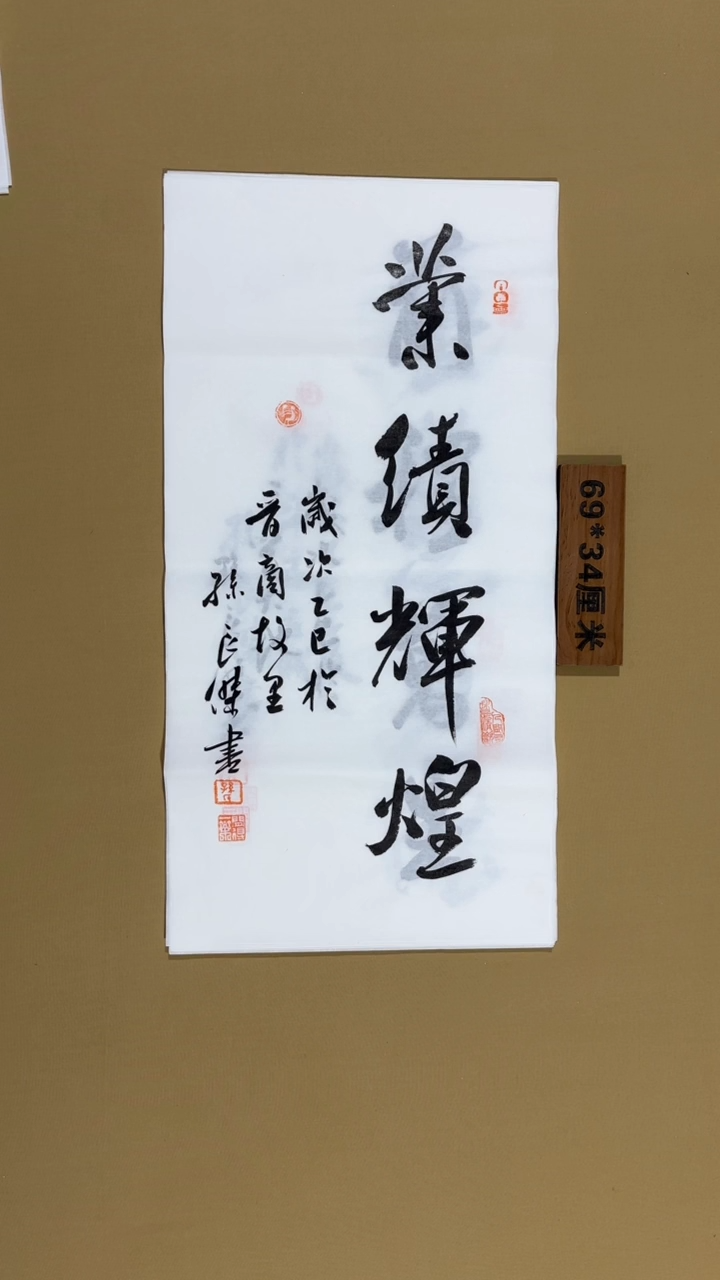 業績輝煌
歲次乙巳於
晋商故里
孫良傑書
69*34厘米